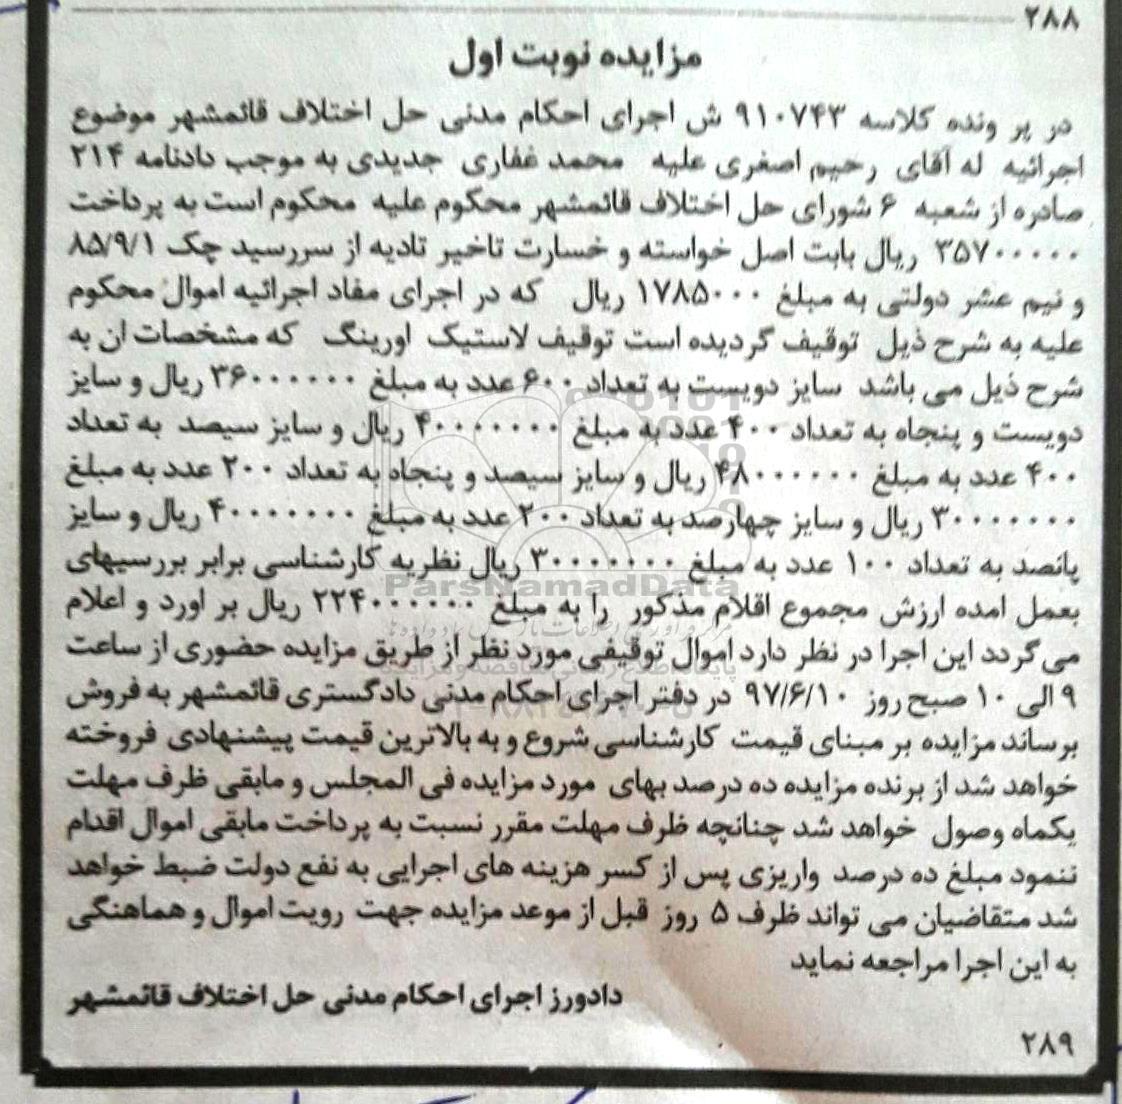 ۲۸۸
مزایده نوبت اول
در پر ونده کلاسه ۹۱۰۷۴۳ ش اجرای احکام مدنی حل اختلاف قائمشهر موضوع
اجرائیه له آقای رحیم اصغری علیه محمد غفاری جدیدی به موجب دادنامه ۲۱۴
صادره از شعبه ۶ شورای حل اختلاف قائمشهر محکوم علیه محکوم است به پرداخت
۳۵۷۰۰۰۰۰ ریال بابت اصل خواسته و خسارت تاخیر تادیه از سررسید چک ۸۵/۹/۱
و نیم عشر دولتی به مبلغ ۱۷۸۵۰۰۰ ریال که در اجرای مفاد اجرائیه اموال محکوم
علیه به شرح ذیل توقیف گردیده است توقیف لاستیک اورینگ که مشخصات ان به
شرح ذیل می باشد سایز دویست به تعداد ۶۰۰ عدد به مبلغ ۳۶۰۰۰۰۰۰ ریال و سایز
دویست و پنجاه به تعداد ۴۰۰ عدد به مبلغ ۴۰۰۰۰۰۰۰ ریال و سایز سیصد به تعداد
۴۰۰ عدد به مبلغ ۴۸۰۰۰۰۰۰ ریال و سایز سیصد و پنجاه به تعداد ۲۰۰ عدد به مبلغ
۳۰۰۰۰۰۰۰ ریال و سایز چهارصد به تعداد ۲۰۰ عدد به مبلغ ۴۰۰۰۰۰۰۰ ریال و سایز
پانصد به تعداد ۱۰۰ عدد به مبلغ ۳۰۰۰۰۰۰۰ ریال نظریه کارشناسی برابر بررسیهای
ParsNamadData
بعمل امده ارزش مجموع اقلام مذکور را به مبلغ ۲۲۴۰۰۰۰۰۰ ریال بر اورد و اعلام
می گردد این اجرا در نظر دارد اموال توقیفی مورد نظر از طریق مزایده حضوری از ساعت
۹ الی ۱۰ صبح روز ۹۷/۶/۱۰ در دفتر اجرای احکام مدنی دادگستری قائمشهر به فروش
برساند مزایده بر مبنای قیمت کارشناسی شروع و به بالاترین قیمت پیشنهادی فروخته
خواهد شد از برنده مزایده ده درصد بهای مورد مزایده فی المجلس و مابقی ظرف مهلت
یکماه وصول خواهد شد چنانچه ظرف مهلت مقرر نسبت به پرداخت مابقی اموال اقدام
ننمود مبلغ ده درصد واریزی پس از کسر هزینه های اجرایی به نفع دولت ضبط خواهد
شد متقاضیان می تواند ظرف ۵ روز قبل از موعد مزایده جهت رویت اموال و هماهنگی
به این اجرا مراجعه نماید
دادورز اجرای احکام مدنی حل اختلاف قائمشهر
۲۸۹